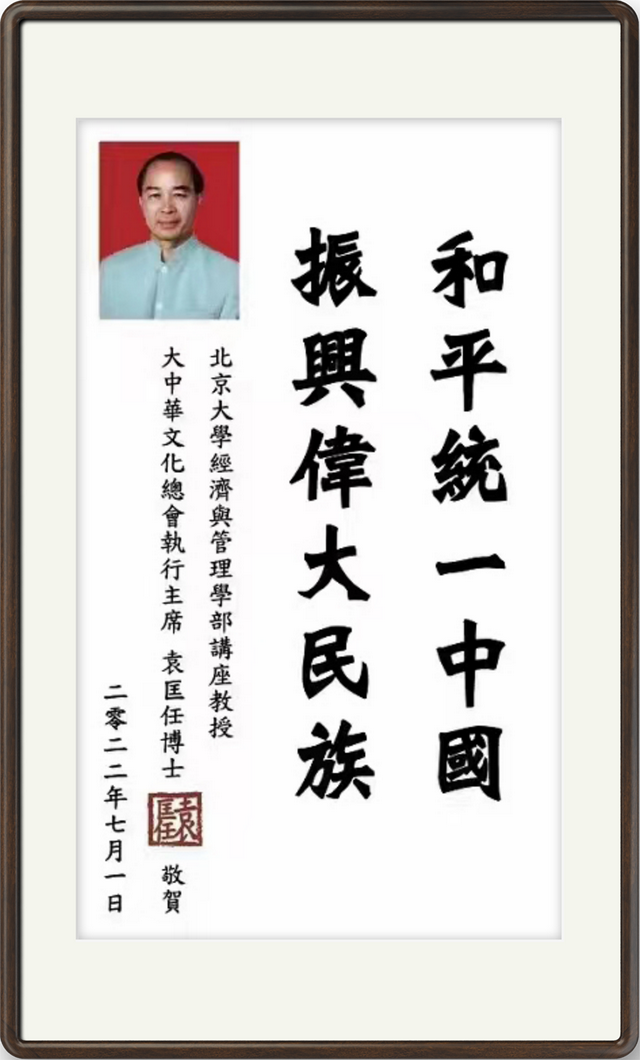 和平統一中國
振興偉大民族
北京大學經濟與管理學部講座教授
大中華文化總會執行主席 袁匡任博士
袁匡任
敬賀
二零二二年七月一日